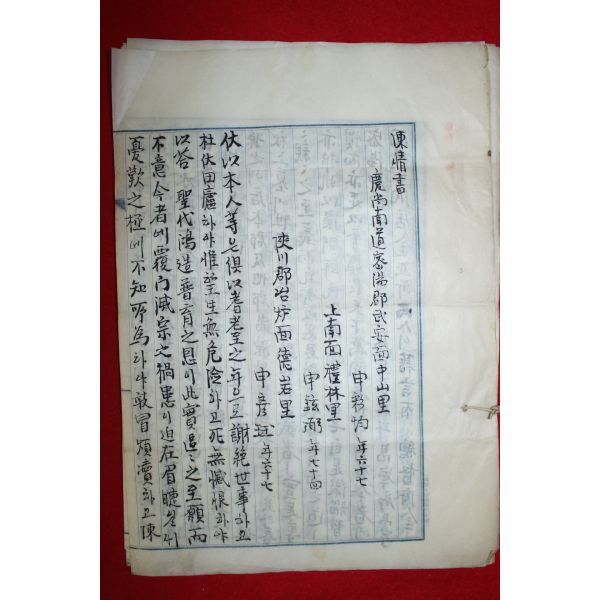 陳情書
慶尙南道密陽郡武安面中山里
申 均 年六十七
上南面禮林里
申鉉弼 年七十四
陜川郡冶炉面德岩里
申彦 年六十七
伏以本人等은俱以耆老至之年으로謝絶世事하고
杜伏田廬하야惟望生無危險하고死無憾恨하야
以答 聖代鴻造普育之恩이此實區々之至願而
不意今者에覆門滅宗之禍患이迫在眉睫일새
憂歎之極에不知所為하야敢冒煩瀆하고陳